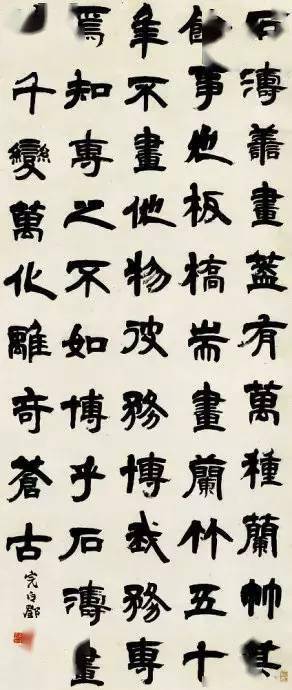 石濤善畫蓋有萬種蘭竹其
餘事也板橋耑畫蘭竹五十
年不畫他物彼務博我務專
焉知專之不如博乎石濤畫
千變萬化離奇蒼古
完白鄧